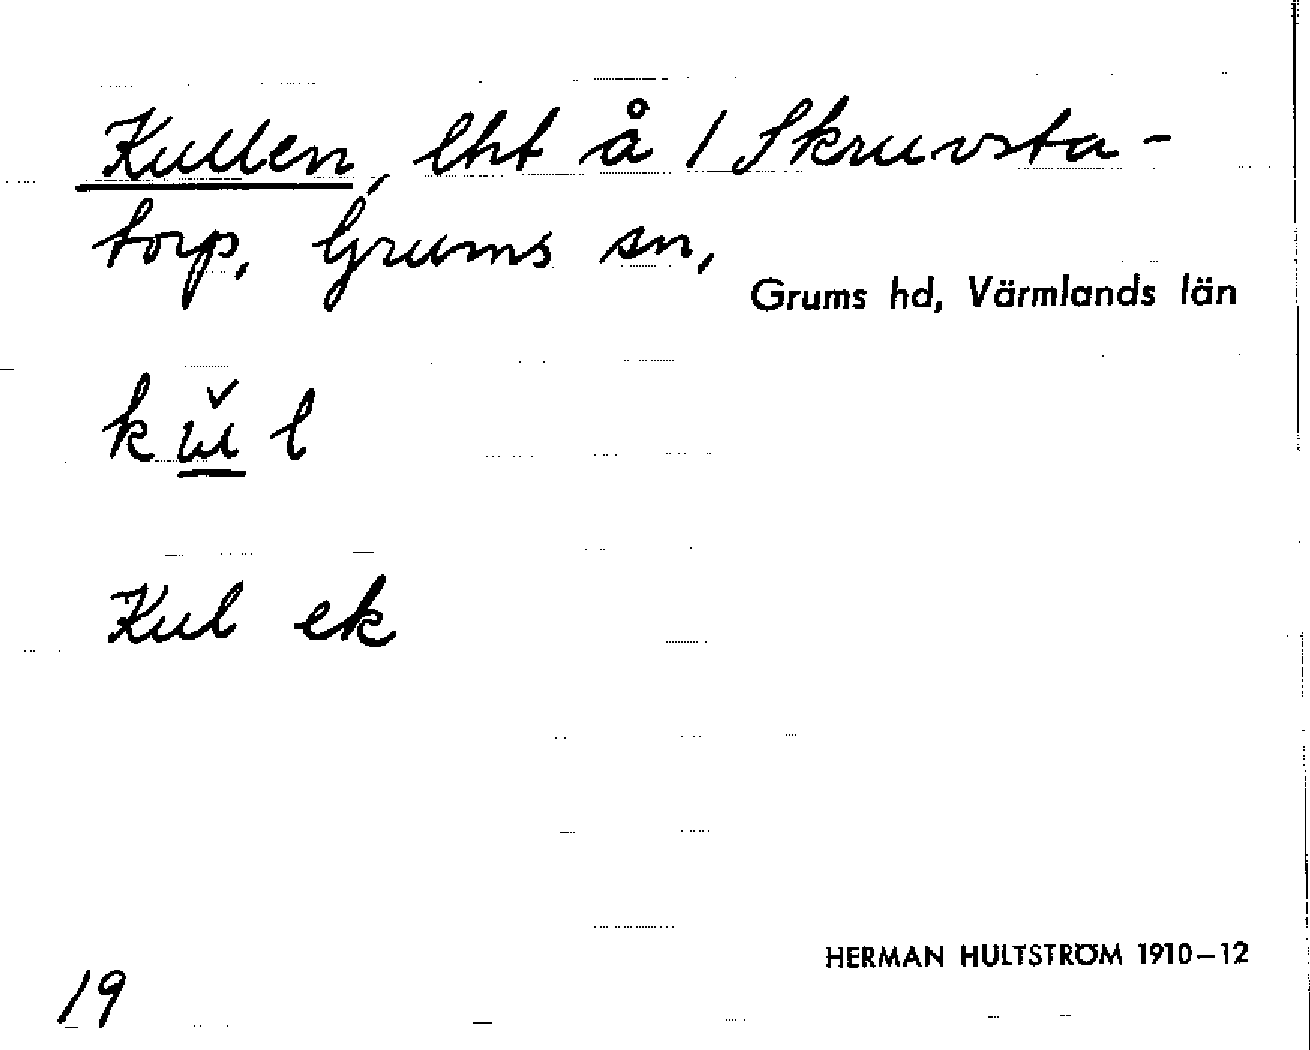 Kullen, lht å / Skruvsta-
torp, Grums sn,
Grums hd, Värmlands län
k l
Kul ek
HERMAN HULTSTRÖM 1910–12
19